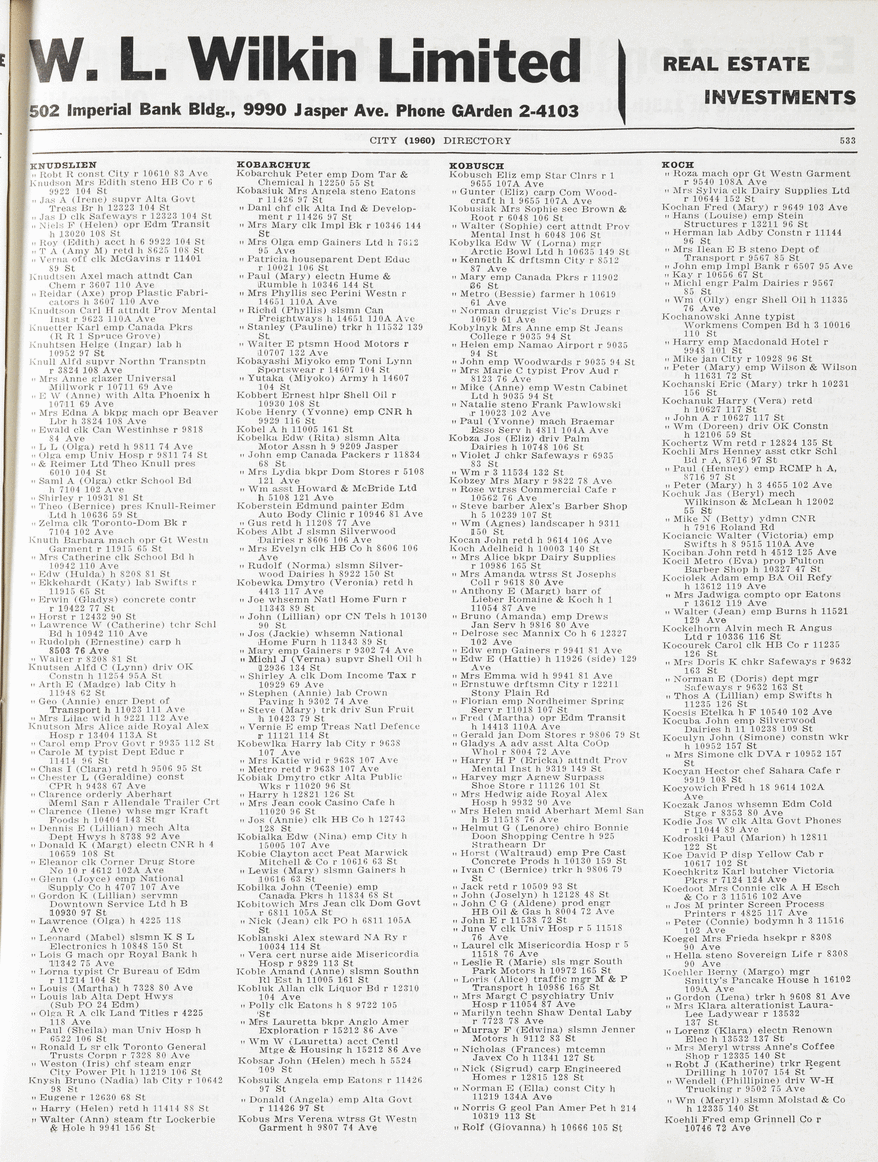 W. L. Wilkin Limited
502 Imperial Bank Bldg., 9990 Jasper Ave. Phone GArden 2-4103
REAL ESTATE
INVESTMENTS
CITY (1960) DIRECTORY
533
KNUDSLIEN
" Robt R const City r 10610 83 Ave
Knudson Mrs Edith steno HB Co r 6
9922 104 St
" Jas A (Irene) supvr Alta Govt
Treas Br h 12323 104 St
" Jas D clk Safeways r 12323 104 St
" Niels F (Helen) opr Edm Transit
h 13020 108 St
" Roy (Edith) acct h 6 9922 104 St
" T A (Amy M) retd h 8625 108 St
" Verna off clk McGavins r 11401
89 St
Knudtsen Axel mach attndt Can
Chem r 3607 110 Ave
" Reidar (Axe) prop Plastic Fabri-
cators h 3607 110 Ave
Knudtson Carl H attndt Prov Mental
Inst r 9623 110A Ave
Knuetter Karl emp Canada Pkrs
(R R 1 Spruce Grove)
Knuhtsen Helge (Ingar) lab h
10952 97 St
Knull Alfd supvr Northn Transptn
r 3824 108 Ave
" Mrs Anne glazer Universal
Millwork r 10711 69 Ave
" E W (Anne) with Alta Phoenix h
10711 69 Ave
" Mrs Edna A bkpg mach opr Beaver
Lbr h 3824 108 Ave
" Ewald clk Can Westinhse r 9818
84 Ave
" L L (Olga) retd h 9811 74 Ave
" Olga emp Univ Hosp r 9811 74 Ave
" & Reimer Ltd Theo Knull pres
6010 104 St
" Saml A (Olga) ctkr School Bd
h 7104 102 Ave
" Shirley r 10931 81 St
" Theo (Bernice) pres Knull-Reimer
Ltd h 10636 59 St
" Zelma clk Toronto-Dom Bk r
7104 102 Ave
Knuth Barbara mach opr Gt Westn
Garment r 11915 65 St
" Mrs Catherine clk School Bd h
10942 110 Ave
" Edw (Hulda) h 8208 81 St
" Ekkehardt (Katy) lab Swifts r
11915 65 St
" Erwin (Gladys) concrete contr
r 19422 77 St
" Horst r 12432 90 St
" Lawrence W (Catherine) tchr Schl
Bd h 10942 110 Ave
" Rudolph (Ernestine) carp h
8503 76 Ave
" Walter r 8208 81 St
Knutsen Alfd C (Lynn) driv OK
Constn h 11254 95A St
" Arth E (Madge) lab City h
11948 62 St
" Geo (Annie) engr Dept of
Transport h 11023 111 Ave
" Mrs Lilac wid h 9221 112 Ave
Knutson Mrs Alice aide Royal Alex
Hosp r 13404 113A St
" Carol emp Prov Govt r 9935 112 St
" Carole M typist Dept Educ r
11414 96 St
" Chas I (Clara) retd h 9506 95 St
" Chester L (Geraldine) const
CPR h 9438 67 Ave
" Clarence orderly Aberhart
Meml San r Allendale Trailer Crt
" Clarence (Ilene) whse mgr Kraft
Foods h 10404 143 St
" Dennis E (Lillian) mech Alta
Dept Hwys h 8738 92 Ave
" Donald K (Margt) electn CNR h 4
10659 108 St
" Eleanor clk Corner Drug Store
No 10 r 4612 102A Ave
" Glenn (Joyce) emp National
Supply Co h 4707 107 Ave
" Gordon K (Lillian) servmn
Downtown Service Ltd h B
10930 97 St
" Lawrence (Olga) h 4225 118
Ave
" Leonard (Mabel) slsmn K S L
Electronics h 10848 150 St
" Lois G mach opr Royal Bank h
11342 75 Ave
" Lorna typist Cr Bureau of Edm
r 11214 104 St
" Louis (Martha) h 7328 80 Ave
" Louis lab Alta Dept Hwys
(Sub PO 24 Edm)
" Olga R A clk Land Titles r 4225
118 Ave
" Paul (Sheila) man Univ Hosp h
6522 106 St
" Ronald L sr clk Toronto General
Trusts Corpn r 7328 80 Ave
" Weston (Iris) chf steam engr
City Power Plt h 11219 106 St
Knysh Bruno (Nadia) lab City r 10642
98 St
" Eugene r 12630 68 St
" Harry (Helen) retd h 11414 88 St
" Walter (Ann) steam ftr Lockerbie
& Hole h 9941 156 St
KOBARCHUK
Kobarchuk Peter emp Dom Tar &
Chemical h 12250 55 St
Kobasiuk Mrs Angela steno Eatons
r 11426 97 St
" Danl chf clk Alta Ind & Develop-
ment r 11426 97 St
" Mrs Mary clk Impl Bk r 10346 144
St
" Mrs Olga emp Gainers Ltd h 7612
95 Ave
" Patricia houseparent Dept Educ
r 10021 106 St
" Paul (Mary) electn Hume &
Rumble h 10346 144 St
" Mrs Phyllis sec Perini Westn r
14651 110A Ave
" Richd (Phyllis) slsmn Can
Freightways h 14651 110A Ave
" Stanley (Pauline) trkr h 11532 139
St
" Walter E ptsmn Hood Motors r
10707 132 Ave
Kobayashi Miyoko emp Toni Lynn
Sportswear r 14607 104 St
" Yutaka (Miyoko) Army h 14607
104 St
Kobbert Ernest hlpr Shell Oil r
10930 108 St
Kobe Henry (Yvonne) emp CNR h
9929 116 St
Kobel A h 11005 161 St
Kobelka Edw (Rita) slsmn Alta
Motor Assn h 9 9209 Jasper
" John emp Canada Packers r 11834
68 St
" Mrs Lydia bkpr Dom Stores r 5108
121 Ave
" Wm asst Howard & McBride Ltd
h 5108 121 Ave
Koberstein Edmund painter Edm
Auto Body Clinic r 10946 81 Ave
" Gus retd h 11208 77 Ave
Kobes Albt J slsmn Silverwood
Dairies r 8606 106 Ave
" Mrs Evelyn clk HB Co h 8606 106
Ave
" Rudolf (Norma) slsmn Silver-
wood Dairies h 8922 150 St
Kobewka Dmytro (Veronia) retd h
4413 117 Ave
" Joe whsemn Natl Home Furn r
11343 89 St
" John (Lillian) opr CN Tels h 10130
90 St
" Jos (Jackie) whsemn National
Home Furn h 11343 89 St
" Mary emp Gainers r 9302 74 Ave
" Michl J (Verna) supvr Shell Oil h
12936 134 St
" Shirley A clk Dom Income Tax r
10929 69 Ave
" Stephen (Annie) lab Crown
Paving h 9302 74 Ave
" Steve (Mary) trk driv Sun Fruit
h 10423 79 St
" Vernie E emp Treas Natl Defence
r 11121 114 St
Kobewlka Harry lab City r 9638
107 Ave
" Mrs Katie wid r 9638 107 Ave
" Metro retd r 9638 107 Ave
Kobiak Dmytro ctkr Alta Public
Wks r 11020 96 St
" Harry h 12821 126 St
" Mrs Jean cook Casino Cafe h
11020 96 St
" Jos (Annie) clk HB Co h 12743
128 St
Kobialka Edw (Nina) emp City h
15005 107 Ave
Kobie Clayton acct Peat Marwick
Mitchell & Co r 10616 63 St
" Lewis (Mary) slsmn Gainers h
10616 63 St
Kobilka John (Teenie) emp
Canada Pkrs h 11834 68 St
Kobitowich Mrs Jean clk Dom Govt
r 6811 105A St
" Nick (Jean) clk PO h 6811 105A
St
Koblanski Alex steward NA Ry r
10034 114 St
" Vera cert nurse aide Misericordia
Hosp r 9829 113 St
Koble Amand (Anne) slsmn Southn
Rl Est h 11005 161 St
Kobluk Allan clk Liquor Bd r 12310
104 Ave
" Polly clk Eatons h 8 9722 105
St
" Mrs Lauretta bkpr Anglo Amer
Exploration r 15212 86 Ave
" Wm W (Lauretta) acct Centl
Mtge & Housing h 15212 86 Ave
Kobsar John (Helen) mech h 5524
109 St
Kobsuik Angela emp Eatons r 11426
97 St
" Donald (Angela) emp Alta Govt
r 11426 97 St
Kobus Mrs Verena wtrss Gt Westn
Garment h 9807 74 Ave
KOBUSCH
Kobusch Eliz emp Star Clnrs r 1
9655 107A Ave
" Gunter (Eliz) carp Com Wood-
craft h 1 9655 107A Ave
Kobusiak Mrs Sophie sec Brown &
Root r 6048 106 St
" Walter (Sophie) cert attndt Prov
Mental Inst h 6048 106 St
Kobylka Edw W (Lorna) mgr
Arctic Bowl Ltd h 10635 149 St
" Kenneth K drftsmn City r 8512
87 Ave
" Mary emp Canada Pkrs r 11902
66 St
" Metro (Bessie) farmer h 10619
61 Ave
" Norman druggist Vic's Drugs r
10619 61 Ave
Kobylnyk Mrs Anne emp St Jeans
College r 9035 94 St
" Helen emp Namao Airport r 9035
94 St
" John emp Woodwards r 9035 94 St
" Mrs Marie C typist Prov Aud r
8123 76 Ave
" Mike (Anne) emp Westn Cabinet
Ltd h 9035 94 St
" Natalie steno Frank Pawlowski
r 10023 102 Ave
" Paul (Yvonne) mach Braemar
Esso Serv h 4811 104A Ave
Kobza Jos (Eliz) driv Palm
Dairies h 10748 106 St
" Violet J chkr Safeways r 6935
83 St
" Wm r 3 11534 132 St
Kobzey Mrs Mary r 9822 78 Ave
" Rose wtrss Commercial Cafe r
10562 76 Ave
" Steve barber Alex's Barber Shop
h 5 10239 107 St
" Wm (Agnes) landscaper h 9311
150 St
Kocan John retd h 9614 106 Ave
Koch Adelheid h 10003 140 St
" Mrs Alice bkpr Dairy Supplies
r 10986 165 St
" Mrs Amanda wtrss St Josephs
Coll r 9618 80 Ave
" Anthony E (Margt) barr of
Lieber Romaine & Koch h 1
11054 87 Ave
" Bruno (Amanda) emp Drews
Jan Serv h 9816 80 Ave
" Delrose sec Mannix Co h 6 12327
102 Ave
" Edw emp Gainers r 9941 81 Ave
" Edw E (Hattie) h 11926 (side) 129
Ave
" Mrs Emma wid h 9941 81 Ave
" Ernstuwe drftsmn City r 12211
Stony Plain Rd
" Florian emp Nordheimer Spring
Serv r 11018 107 St
" Fred (Martha) opr Edm Transit
h 14413 110A Ave
" Gerald jan Dom Stores r 9806 79 St
" Gladys A adv asst Alta CoOp
Whol r 8004 72 Ave
" Harry H P (Ericka) attndt Prov
Mental Inst h 9319 149 St
" Harvey mgr Agnew Surpass
Shoe Store r 11126 101 St
" Mrs Hedwig aide Royal Alex
Hosp h 9932 90 Ave
" Mrs Helen maid Aberhart Meml San
h B 11518 76 Ave
" Helmut G (Lenore) chiro Bonnie
Doon Shopping Centre h 925
Strathearn Dr
" Horst (Waltraud) emp Pre Cast
Concrete Prods h 10130 159 St
" Ivan C (Bernice) trkr h 9806 79
St
" Jack retd r 10509 93 St
" John (Joselyn) h 12128 48 St
" John C G (Aldene) prod engr
HB Oil & Gas h 8004 72 Ave
" John E r 11538 72 St
" June V clk Univ Hosp r 5 11518
76 Ave
" Laurel clk Misericordia Hosp r 5
11518 76 Ave
" Leslie R (Marie) sls mgr South
Park Motors h 10972 165 St
" Loris (Alice) traffic mgr M & P
Transport h 10986 165 St
" Mrs Margt C psychiatry Univ
Hosp r 11054 87 Ave
" Marilyn techn Shaw Dental Laby
r 7723 78 Ave
" Murray F (Edwina) slsmn Jenner
Motors h 9112 83 St
" Nicholas (Frances) mtcemn
Javex Co h 11341 127 St
" Nick (Sigrud) carp Engineered
Homes r 12815 128 St
" Norman E (Ella) const City h
11219 134A Ave
" Norris G geol Pan Amer Pet h 214
10319 113 St
" Rolf (Giovanna) h 10666 105 St
KOCH
" Roza mach opr Gt Westn Garment
r 9540 108A Ave
" Mrs Sylvia clk Dairy Supplies Ltd
r 10644 152 St
Kochan Fred (Mary) r 9649 103 Ave
" Hans (Louise) emp Stein
Structures r 13211 96 St
" Herman lab Adby Constn r 11144
96 St
" Mrs Ilean E B steno Dept of
Transport r 9567 85 St
" John emp Impl Bank r 6507 95 Ave
" Kay r 10656 67 St
" Michl engr Palm Dairies r 9567
85 St
" Wm (Olly) engr Shell Oil h 11335
76 Ave
Kochanowski Anne typist
Workmens Compen Bd h 3 10016
110 St
" Harry emp Macdonald Hotel r
9948 101 St
" Mike jan City r 10928 96 St
" Peter (Mary) emp Wilson & Wilson
h 11631 72 St
Kochanski Eric (Mary) trkr h 10231
156 St
Kochanuk Harry (Vera) retd
h 10627 117 St
" John A r 10627 117 St
" Wm (Doreen) driv OK Constn
h 12106 59 St
Kochertz Wm retd r 12824 135 St
Kochli Mrs Henney asst ctkr Schl
Bd r A, 8716 97 St
" Paul (Henney) emp RCMP h A,
8716 97 St
" Peter (Mary) h 3 4655 102 Ave
Kochuk Jas (Beryl) mech
Wilkinson & McLean h 12002
55 St
" Mike N (Betty) ydmn CNR
h 7916 Roland Rd
Kociancic Walter (Victoria) emp
Swifts h 8 9515 110A Ave
Kociban John retd h 4512 125 Ave
Kocil Metro (Eva) prop Fulton
Barber Shop h 10327 47 St
Kociolek Adam emp BA Oil Refy
h 13612 119 Ave
" Mrs Jadwiga compto opr Eatons
r 13612 119 Ave
" Walter (Jean) emp Burns h 11521
129 Ave
Kockelhorn Alvin mech R Angus
Ltd r 10336 116 St
Kocourek Carol clk HB Co r 11235
126 St
" Mrs Doris K chkr Safeways r 9632
163 St
" Norman E (Doris) dept mgr
Safeways r 9632 163 St
" Thos A (Lillian) emp Swifts h
11235 126 St
Kocsis Etelka h F 10540 102 Av
Kocuba John emp Silverwood
Dairies h 11 10238 109 St
Koculyn John (Simone) constn wkr
h 10952 157 St
" Mrs Simone clk DVA r 10952 157
St
Kocyan Hector chef Sahara Cafe r
9919 108 St
Kocyowich Fred h 18 9614 102A
Ave
Koczak Janos whsemn Edm Cold
Stge r 8353 80 Ave
Kodie Jos W clk Alta Govt Phones
r 11044 89 Ave
Kodroski Paul (Marion) h 12811
122 St
Koe David P disp Yellow Cab r
10617 102 St
Koechkritz Karl butcher Victoria
Pkrs r 7124 124 Ave
Koedoot Mrs Connie clk A H Esch
& Co r 3 11516 102 Ave
" Jos M printer Screen Process
Printers r 4825 117 Ave
" Peter (Connie) bodymn h 3 11516
102 Ave
Koegel Mrs Frieda hsekpr r 8308
90 Ave
" Hella steno Sovereign Life r 8308
90 Ave
Koehler Berny (Margo) mgr
Smitty's Pancake House h 16102
109A Ave
" Gordon (Lena) trkr h 9608 81 Ave
" Mrs Klara alterationist Laura-
Lee Ladywear r 13532
137 St
" Lorenz (Klara) electn Renown
Elec h 13532 137 St
" Mrs Meryl wtrss Anne's Coffee
Shop r 12335 140 St
" Robt J (Katherine) trkr Regent
Drilling h 10707 154 St
" Wendell (Phillipine) driv W-H
Trucking r 9502 75 Ave
" Wm (Meryl) slsmn Molstad & Co
h 12335 140 St
Koehli Fred emp Grinnell Co r
10746 72 Ave